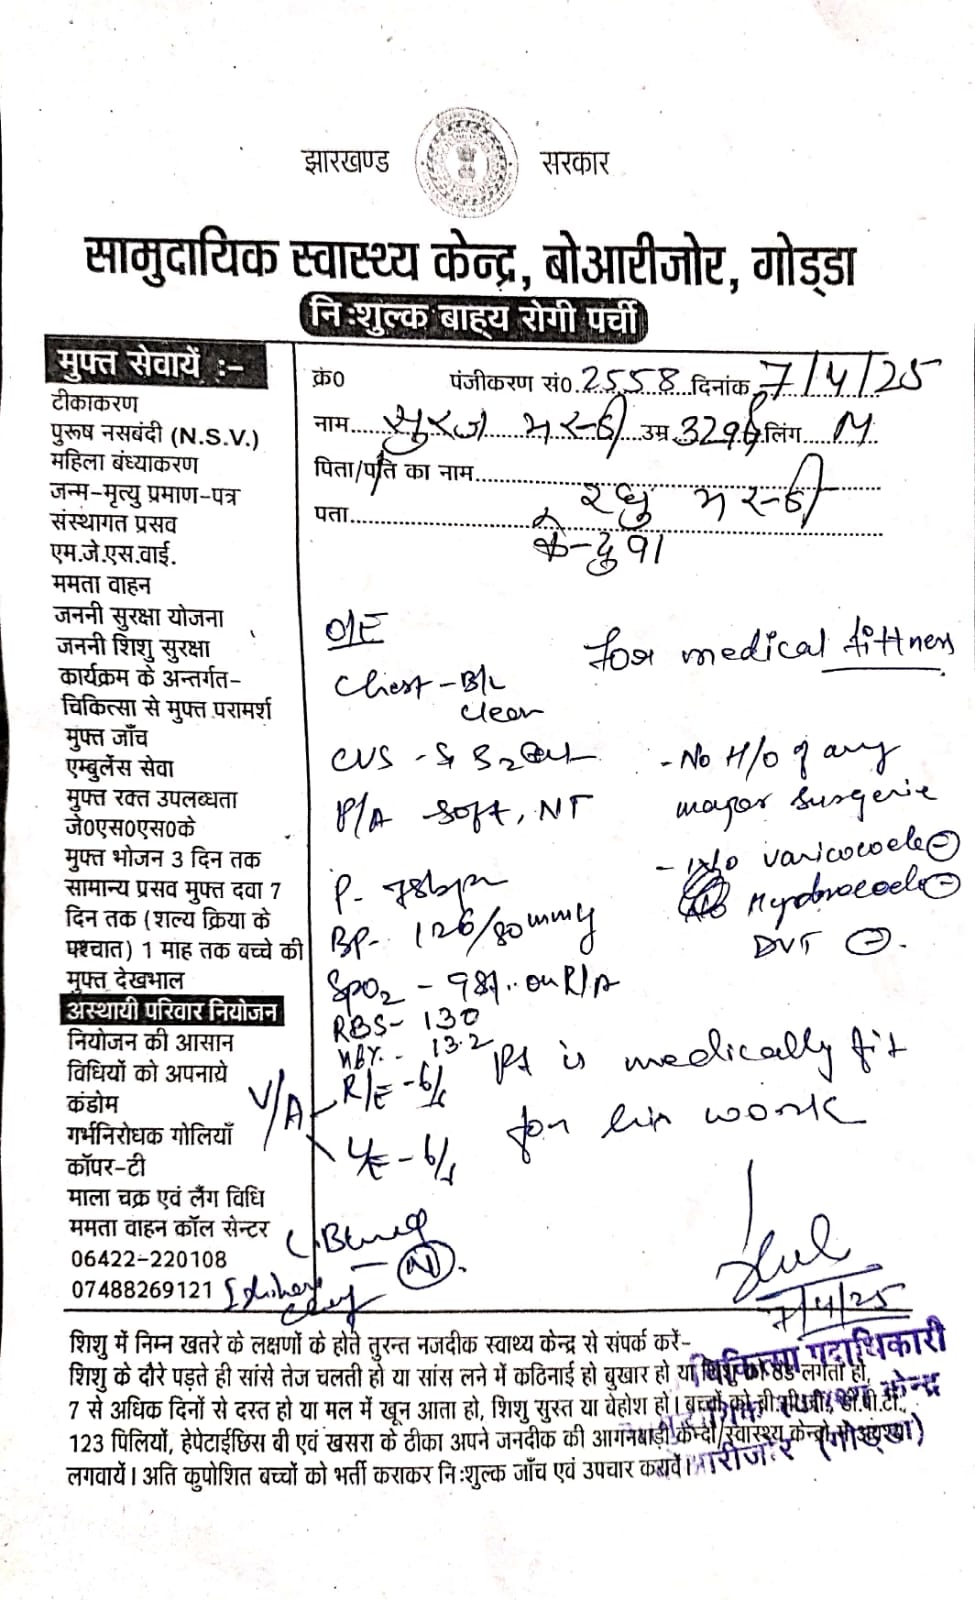 झारखण्ड सरकार
सामुदायिक स्वास्थ्य केन्द्र, बोआरीजोर, गोड्डा
नि:शुल्क बाह्य रोगी पर्ची
मुफ्त सेवायें :-
टीकाकरण
पुरूष नसबंदी (N.S.V.)
महिला बंध्याकरण
जन्म-मृत्यु प्रमाण-पत्र
संस्थागत प्रसव
एम.जे.एस.वाई.
ममता वाहन
जननी सुरक्षा योजना
जननी शिशु सुरक्षा
कार्यक्रम के अन्तर्गत-
चिकित्सा से मुफ्त परामर्श
मुफ्त जाँच
एम्बुलेंस सेवा
मुफ्त रक्त उपलब्धता
जे0एस0एस0के
मुफ्त भोजन 3 दिन तक
सामान्य प्रसव मुफ्त दवा 7
दिन तक (शल्य क्रिया के
पश्चात) 1 माह तक बच्चे की
मुफ्त देखभाल
अस्थायी परिवार नियोजन
नियोजन की आसान
विधियों को अपनाये
कंडोम
गर्भनिरोधक गोलियाँ
कॉपर-टी
माला चक्र एवं लैंग विधि
ममता वाहन कॉल सेन्टर
06422-220108
07488269121
क्रं0 पंजीकरण सं0. 2558 दिनांक 7/4/25
नाम सुरज मरन्डी उम्र 32 लिंग M
पिता/पति का नाम
रघु मरन्डी
पता
O/E
For medical fittness
Chest - B/L
Clear
CVS - S1 S2
P/A Soft, NT
- No H/O of any
major Surgerie
P - 78bpm
varicocele ⊖
Hydrocele ⊖
DVT ⊖.
BP- 126/80mmHg
SpO2 - 98% on R/A
RBS - 130
Hb%. - 13.2
V/A R/E - 6/6
L/E - 6/6
Pt is medically fit
for his work
(N).
7/4/25
शिशु में निम्न खतरे के लक्षणों के होते तुरन्त नजदीक स्वाथ्य केन्द्र से संपर्क करें-
शिशु के दौरे पड़ते ही सांसे तेज चलती हो या सांस लेने में कठिनाई हो बुखार हो या शिशु को ठंड लगता हो,
7 से अधिक दिनों से दस्त हो या मल में खून आता हो, शिशु सुस्त या वेहोश हो। बच्चों को बी.सी.जी., डी.पी.टी.,
123 पिलियों, हेपेटाईछिस बी एवं खसरा के ठीका अपने जनदीक की आगनबाड़ी केन्दों/स्वास्थ्य केन्द्रो से अवश्य
लगवायें। अति कुपोशित बच्चों को भर्ती कराकर नि:शुल्क जाँच एवं उपचार करावें।
चिकित्सा पदाधिकारी
केन्द्र